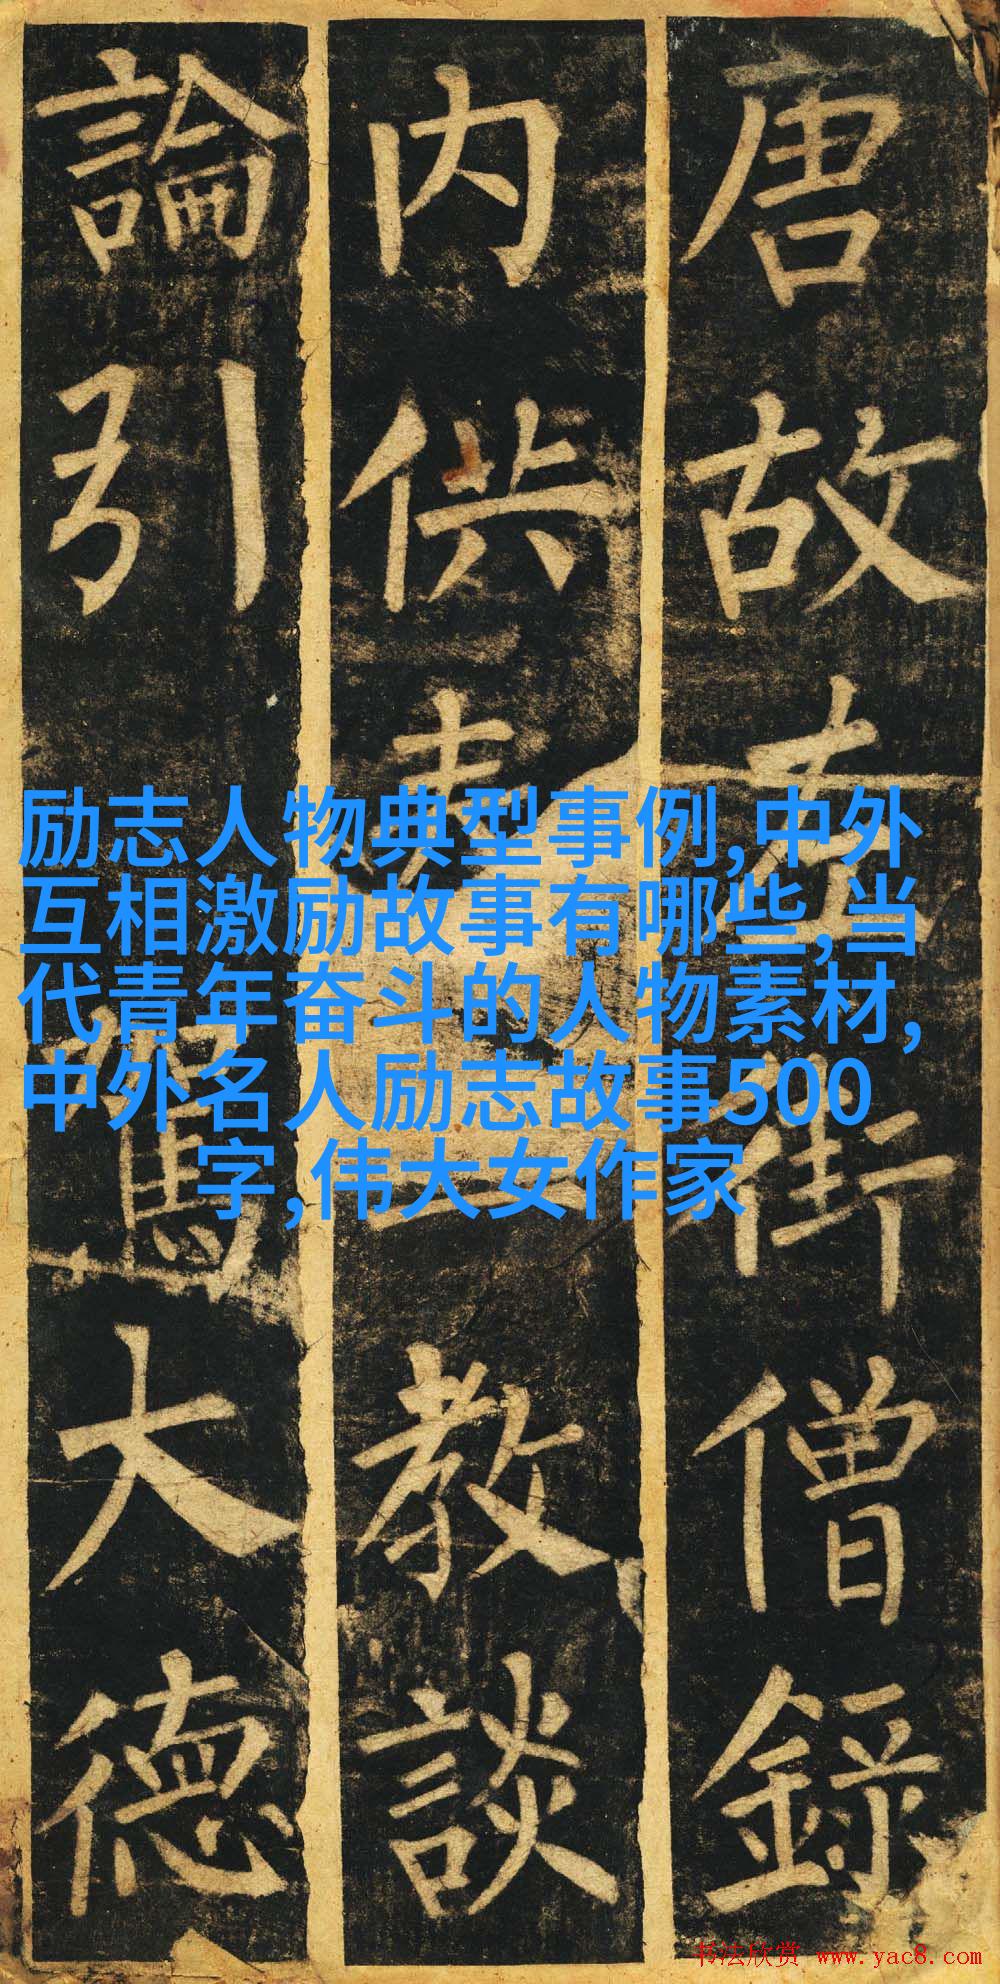 唐故左街僧錄
内供奉三教談
論引駕大德
励志人物典型事例,中外
互相激励故事有哪些,当
代青年奋斗的人物素材,
中外名人励志故事500
字,伟大女作家
书法欣赏 www.yac8.com